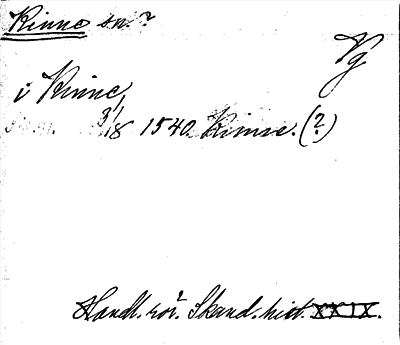 Kinne sn.?
Vg
i Kinne
3/18 1540. Kinne. (?)
Handl. rör. Skand. hist. XXIX.